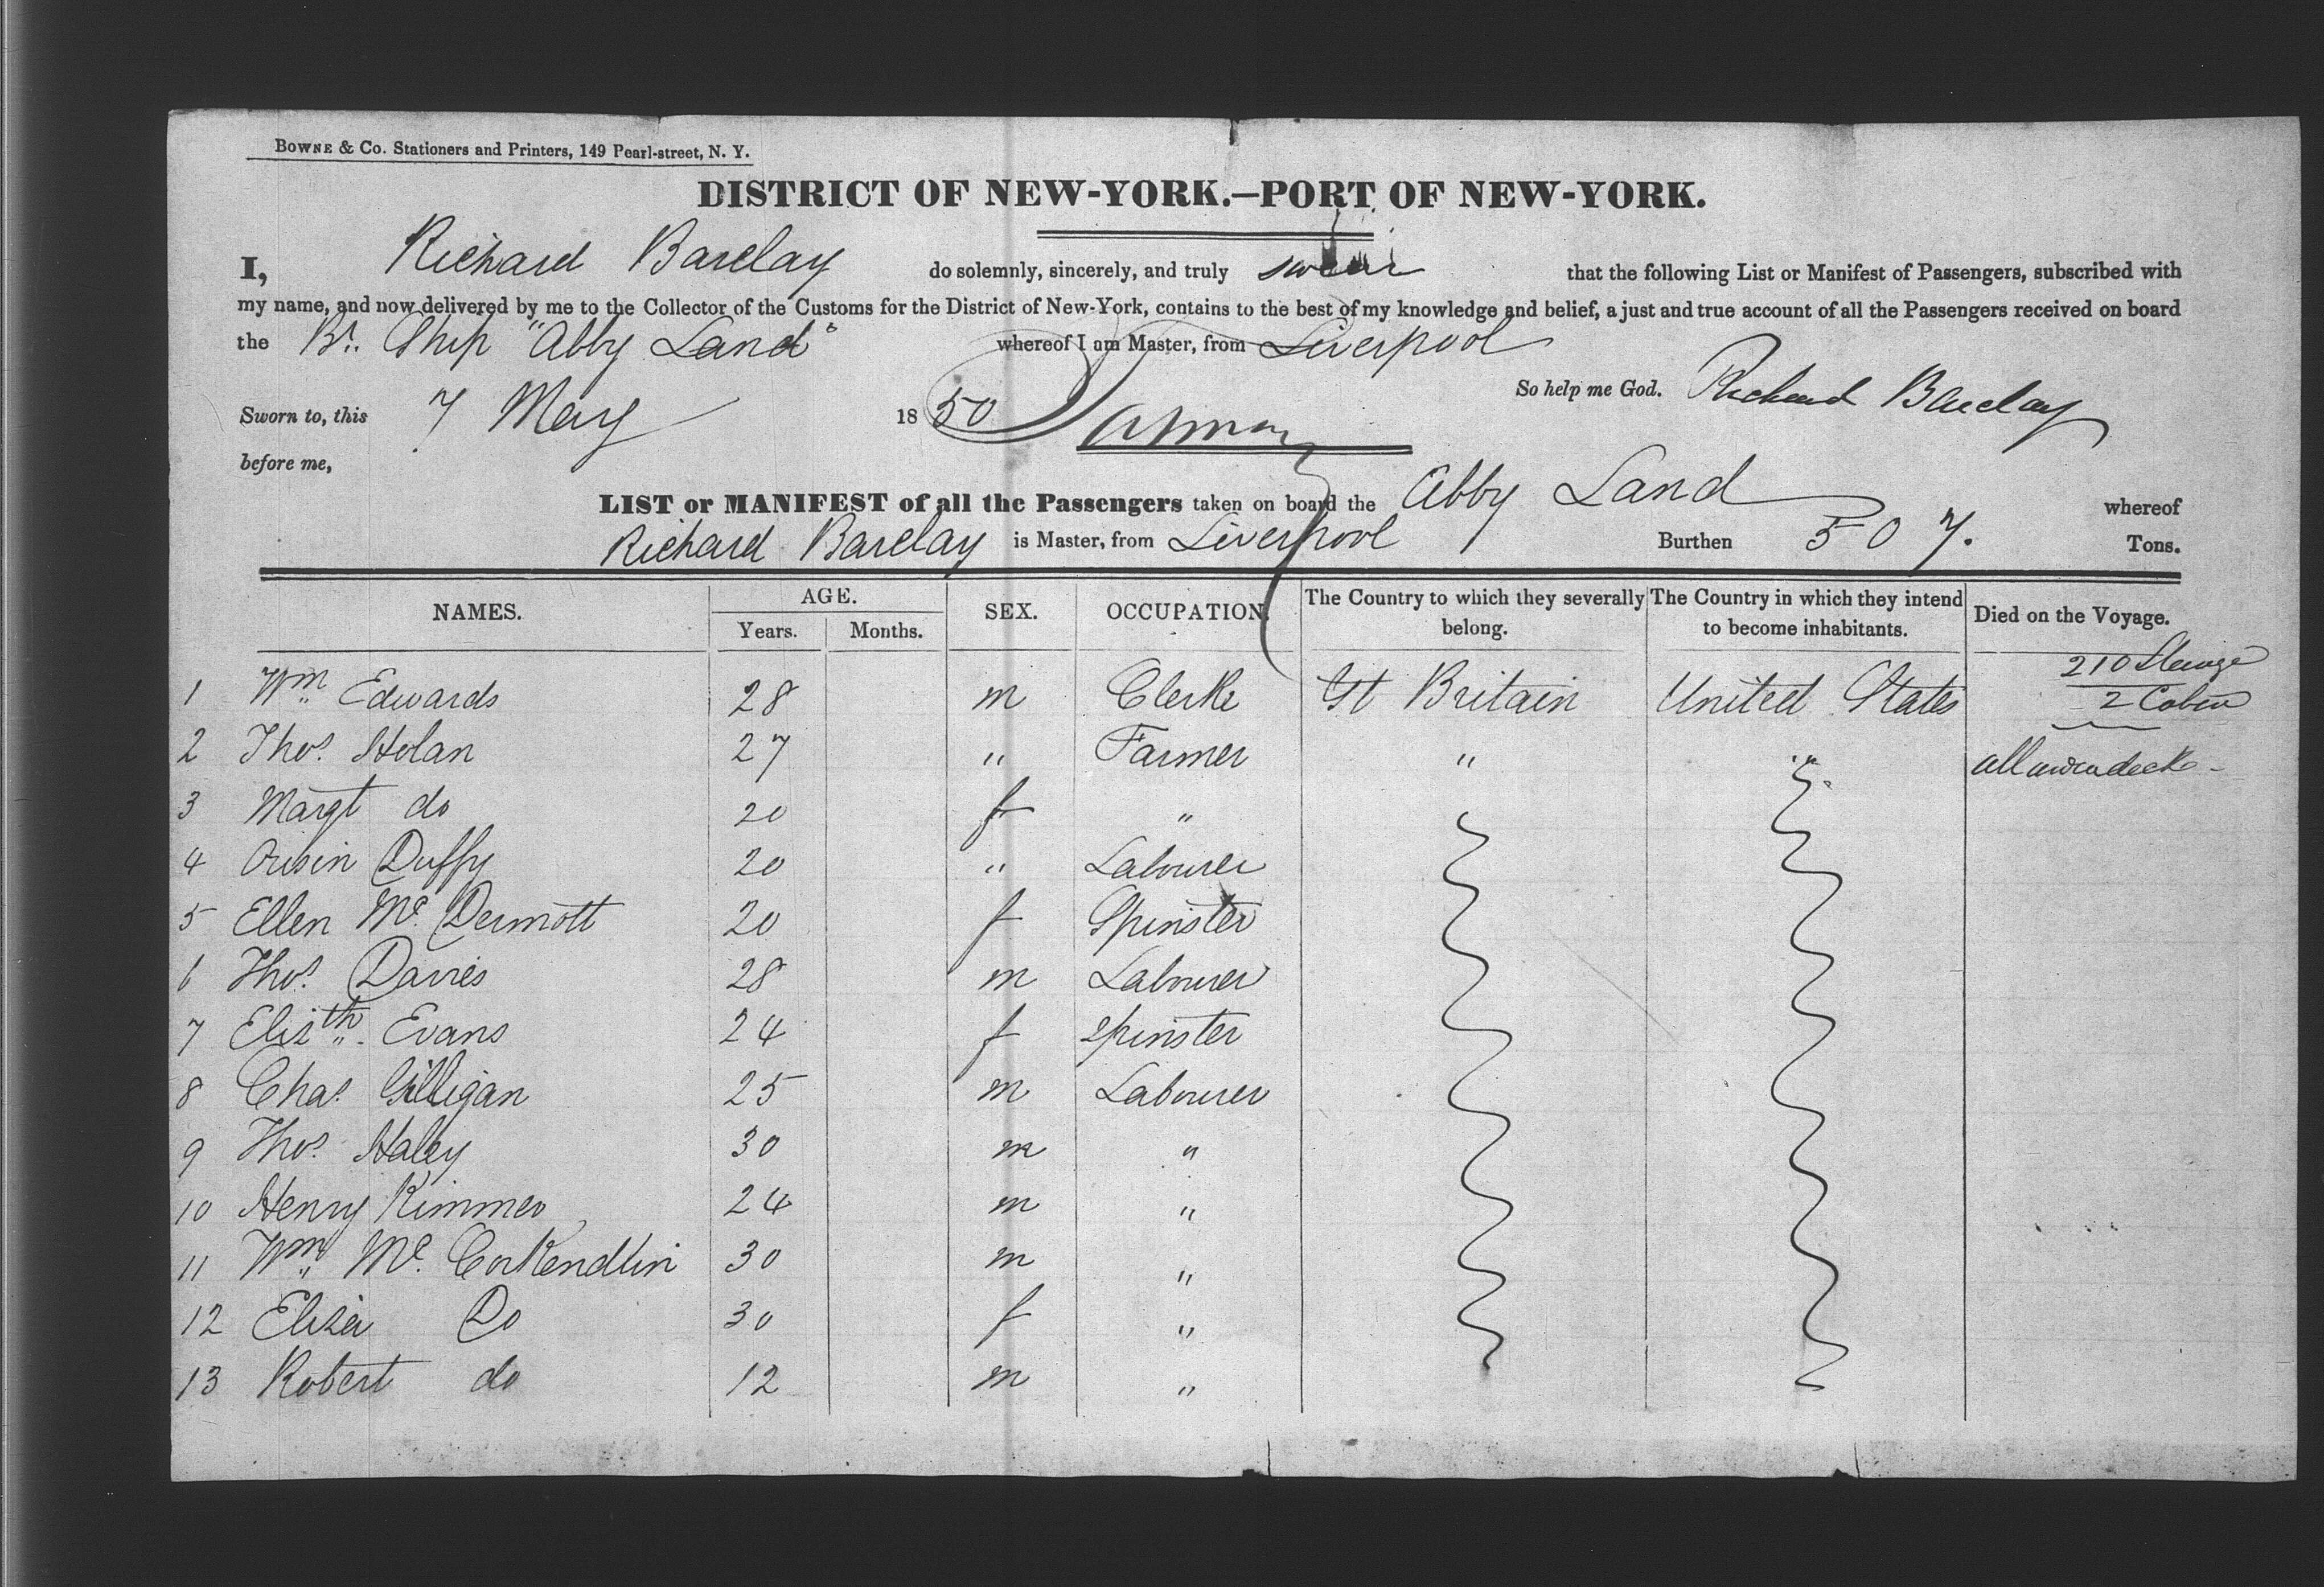 BOWNE & Co. Stationers and Printers, 149 Pearl-street, N. Y.
DISTRICT OF NEW-YORK.—PORT OF NEW-YORK.
I, Richard Barclay do solemnly, sincerely, and truly swear that the following List or Manifest of Passengers, subscribed with
my name, and now delivered by me to the Collector of the Customs for the District of New-York, contains to the best of my knowledge and belief, a just and true account of all the Passengers received on board
the Br. Ship "Abby Land" whereof I am Master, from Liverpool
So help me God. Richard Barclay
Sworn to, this 7 May 1850
before me,
LIST or MANIFEST of all the Passengers taken on board the Abby Land whereof
Richard Barclay is Master, from Liverpool Burthen 507. Tons.
NAMES. AGE. Years. Months. SEX. OCCUPATION. The Country to which they severally belong. The Country in which they intend to become inhabitants. Died on the Voyage.
210 Steerage
1 Wm Edwards 28 m Clerke Gt Britain United States 2 Cabin
2 Thos. Holan 27 " Farmer " "
all deck
3 Margt do 20 f "
4 Duffy 20 " Labourer
5 Ellen Mc. Dermott 20 f Spinster
6 Thos. Davies 28 m Labourer
7 Elizth. Evans 24 f Spinster
8 Chas. Gilligan 25 m Labourer
9 Thos. Haley 30 m "
10 Henry Rimmer 24 m "
11 Wm Mc. 30 m "
12 Eliza Do 30 f "
13 Robert do 12 m "